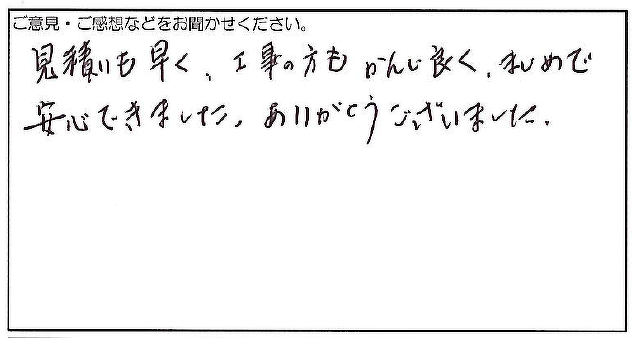 ご意見・ご感想などをお聞かせください。
見積りも早く、工事の方もかんじ良く、まじめで
安心できました。ありがとうございました。